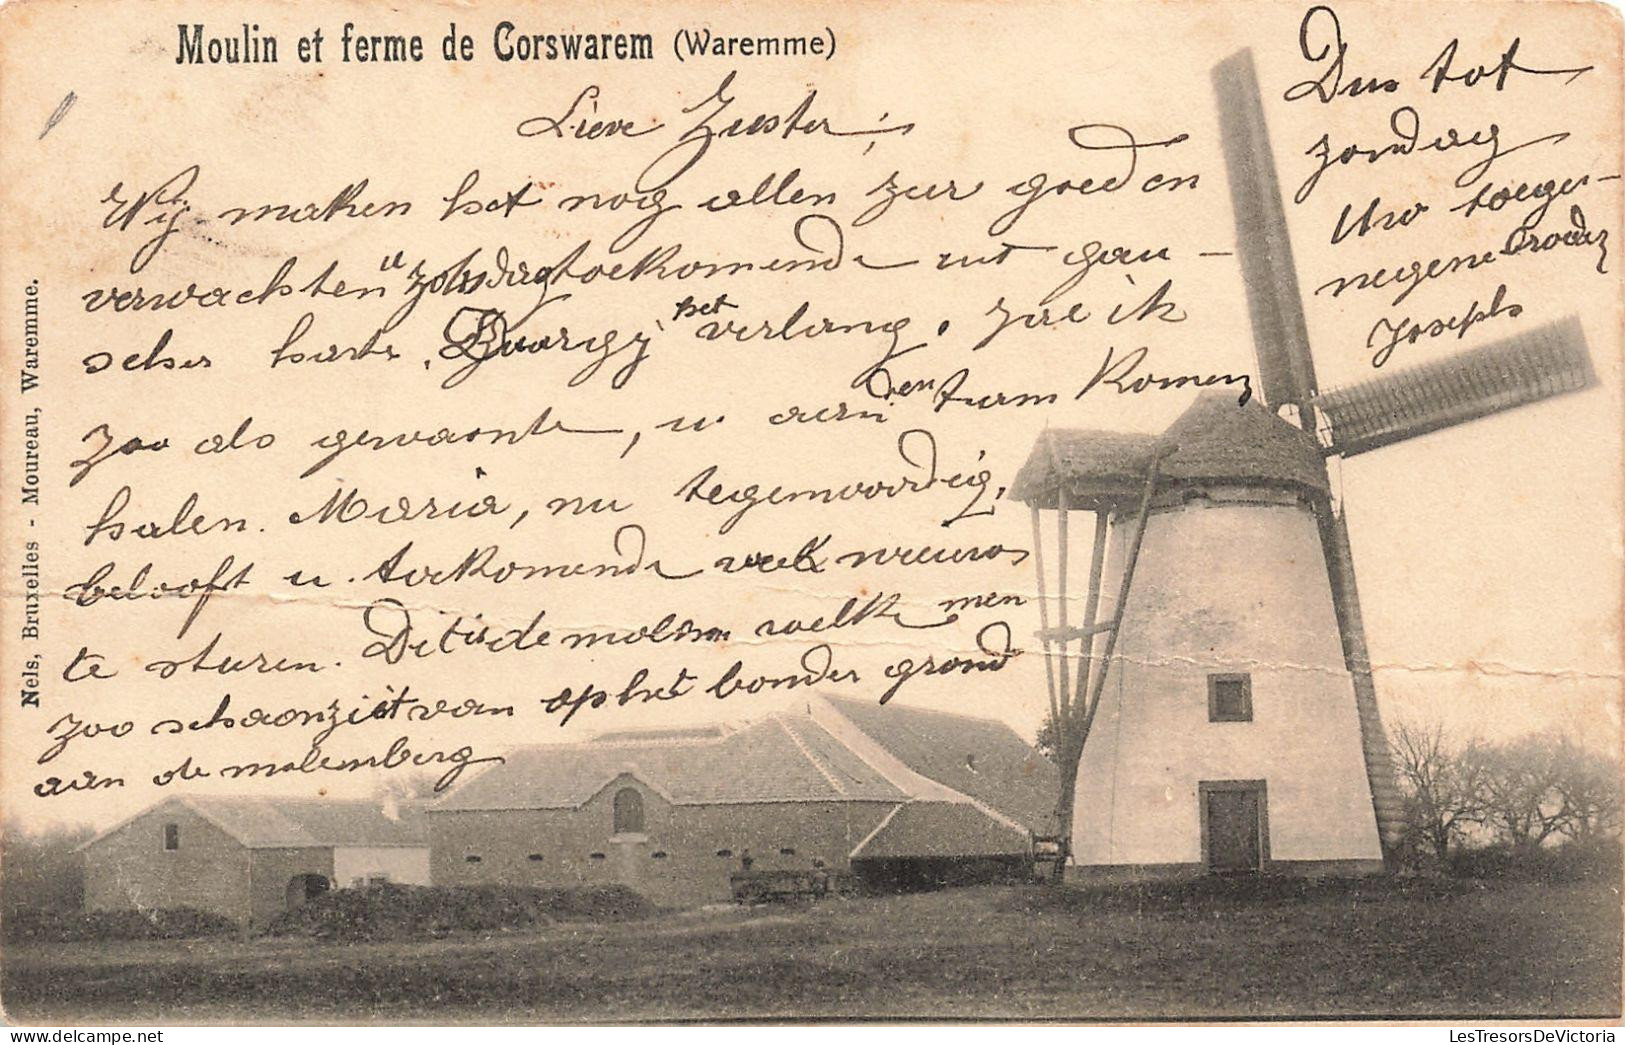 Moulin et ferme de Corswarem (Waremme)
Lieve Zuster,
Wij maken het nog allen zeer goed en
verwachten u zondag toekomende uit gan-
scher harte. het verlang. zal ik
zoo als gewoonte, u aan den tram komen
halen. Maria, nu tegenwoordig,
belooft u toekomende week nieuws
te sturen. Dit is de molen welk men
zoo schoon ziet van op het bonder grond
aan de molenberg
Dus tot
zondag
Uw toege-
negene Broeder
Joseph
Nels, Bruxelles - Moureau, Waremme.
LesTresorsDeVictoria